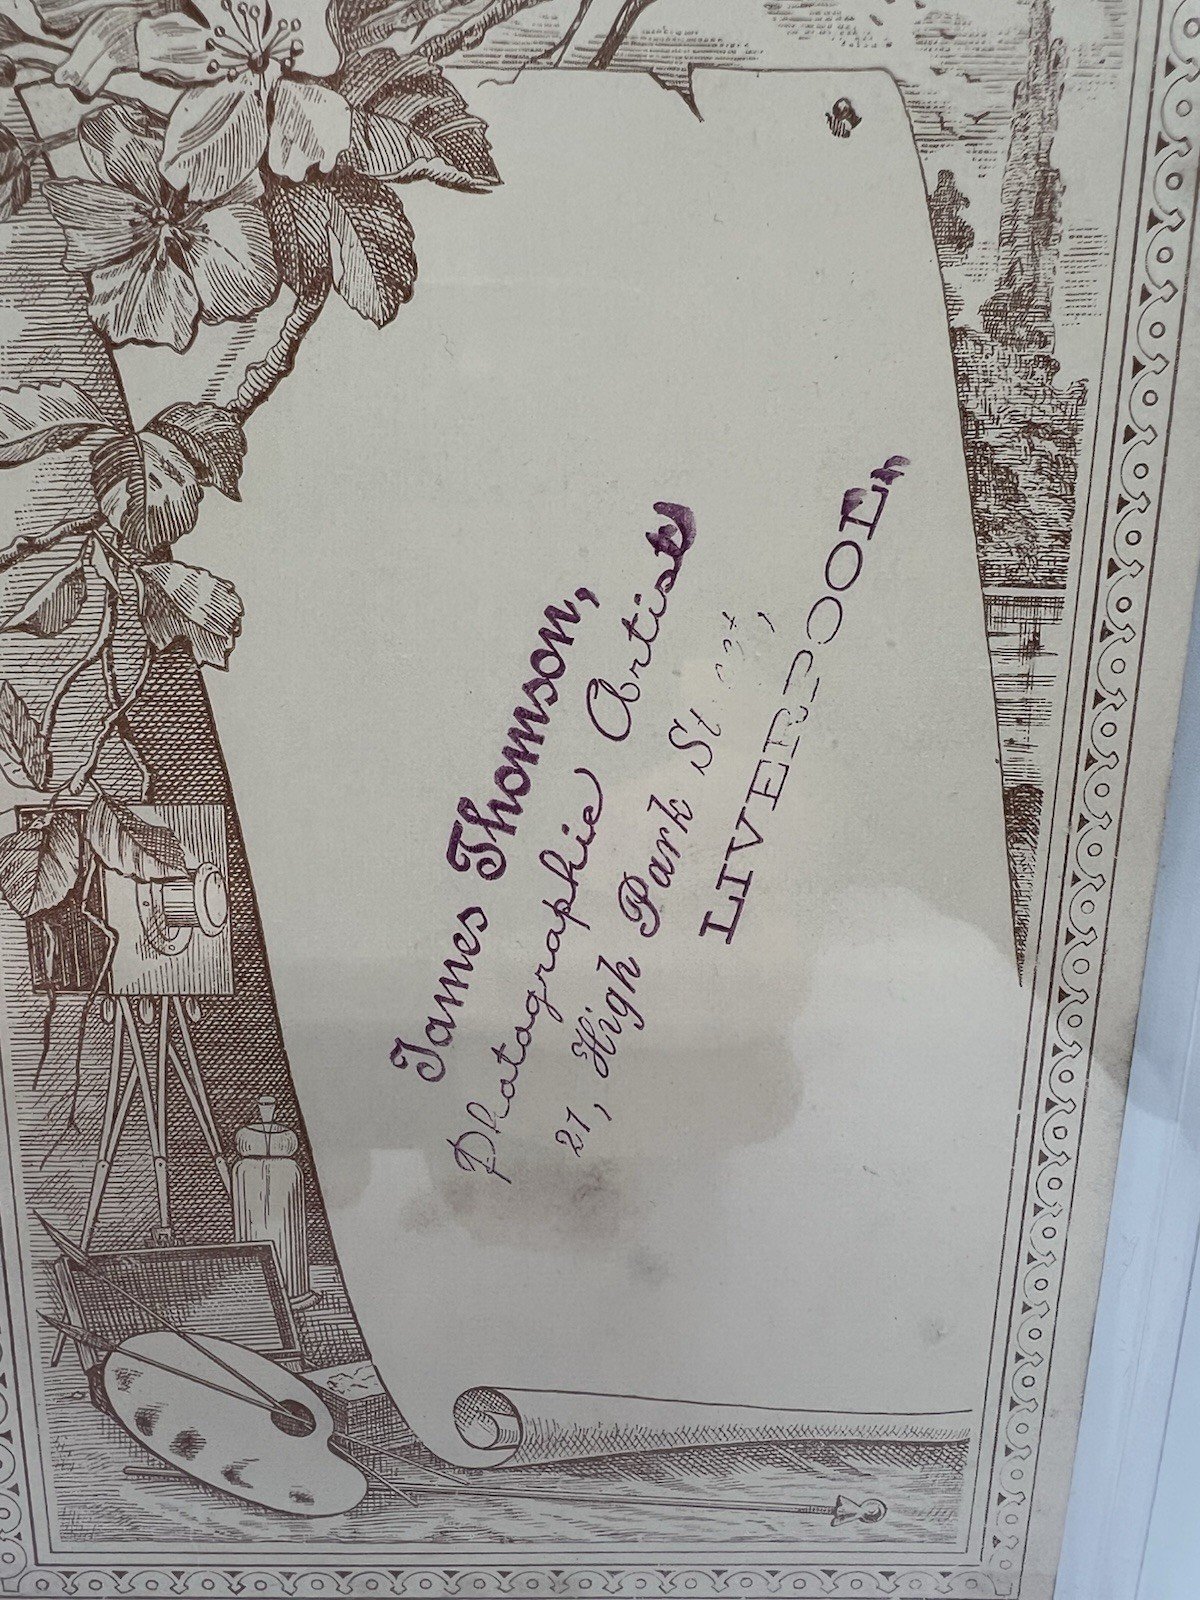 James Thomson,
Photographic Artist
21, High Park Street,
LIVERPOOL,